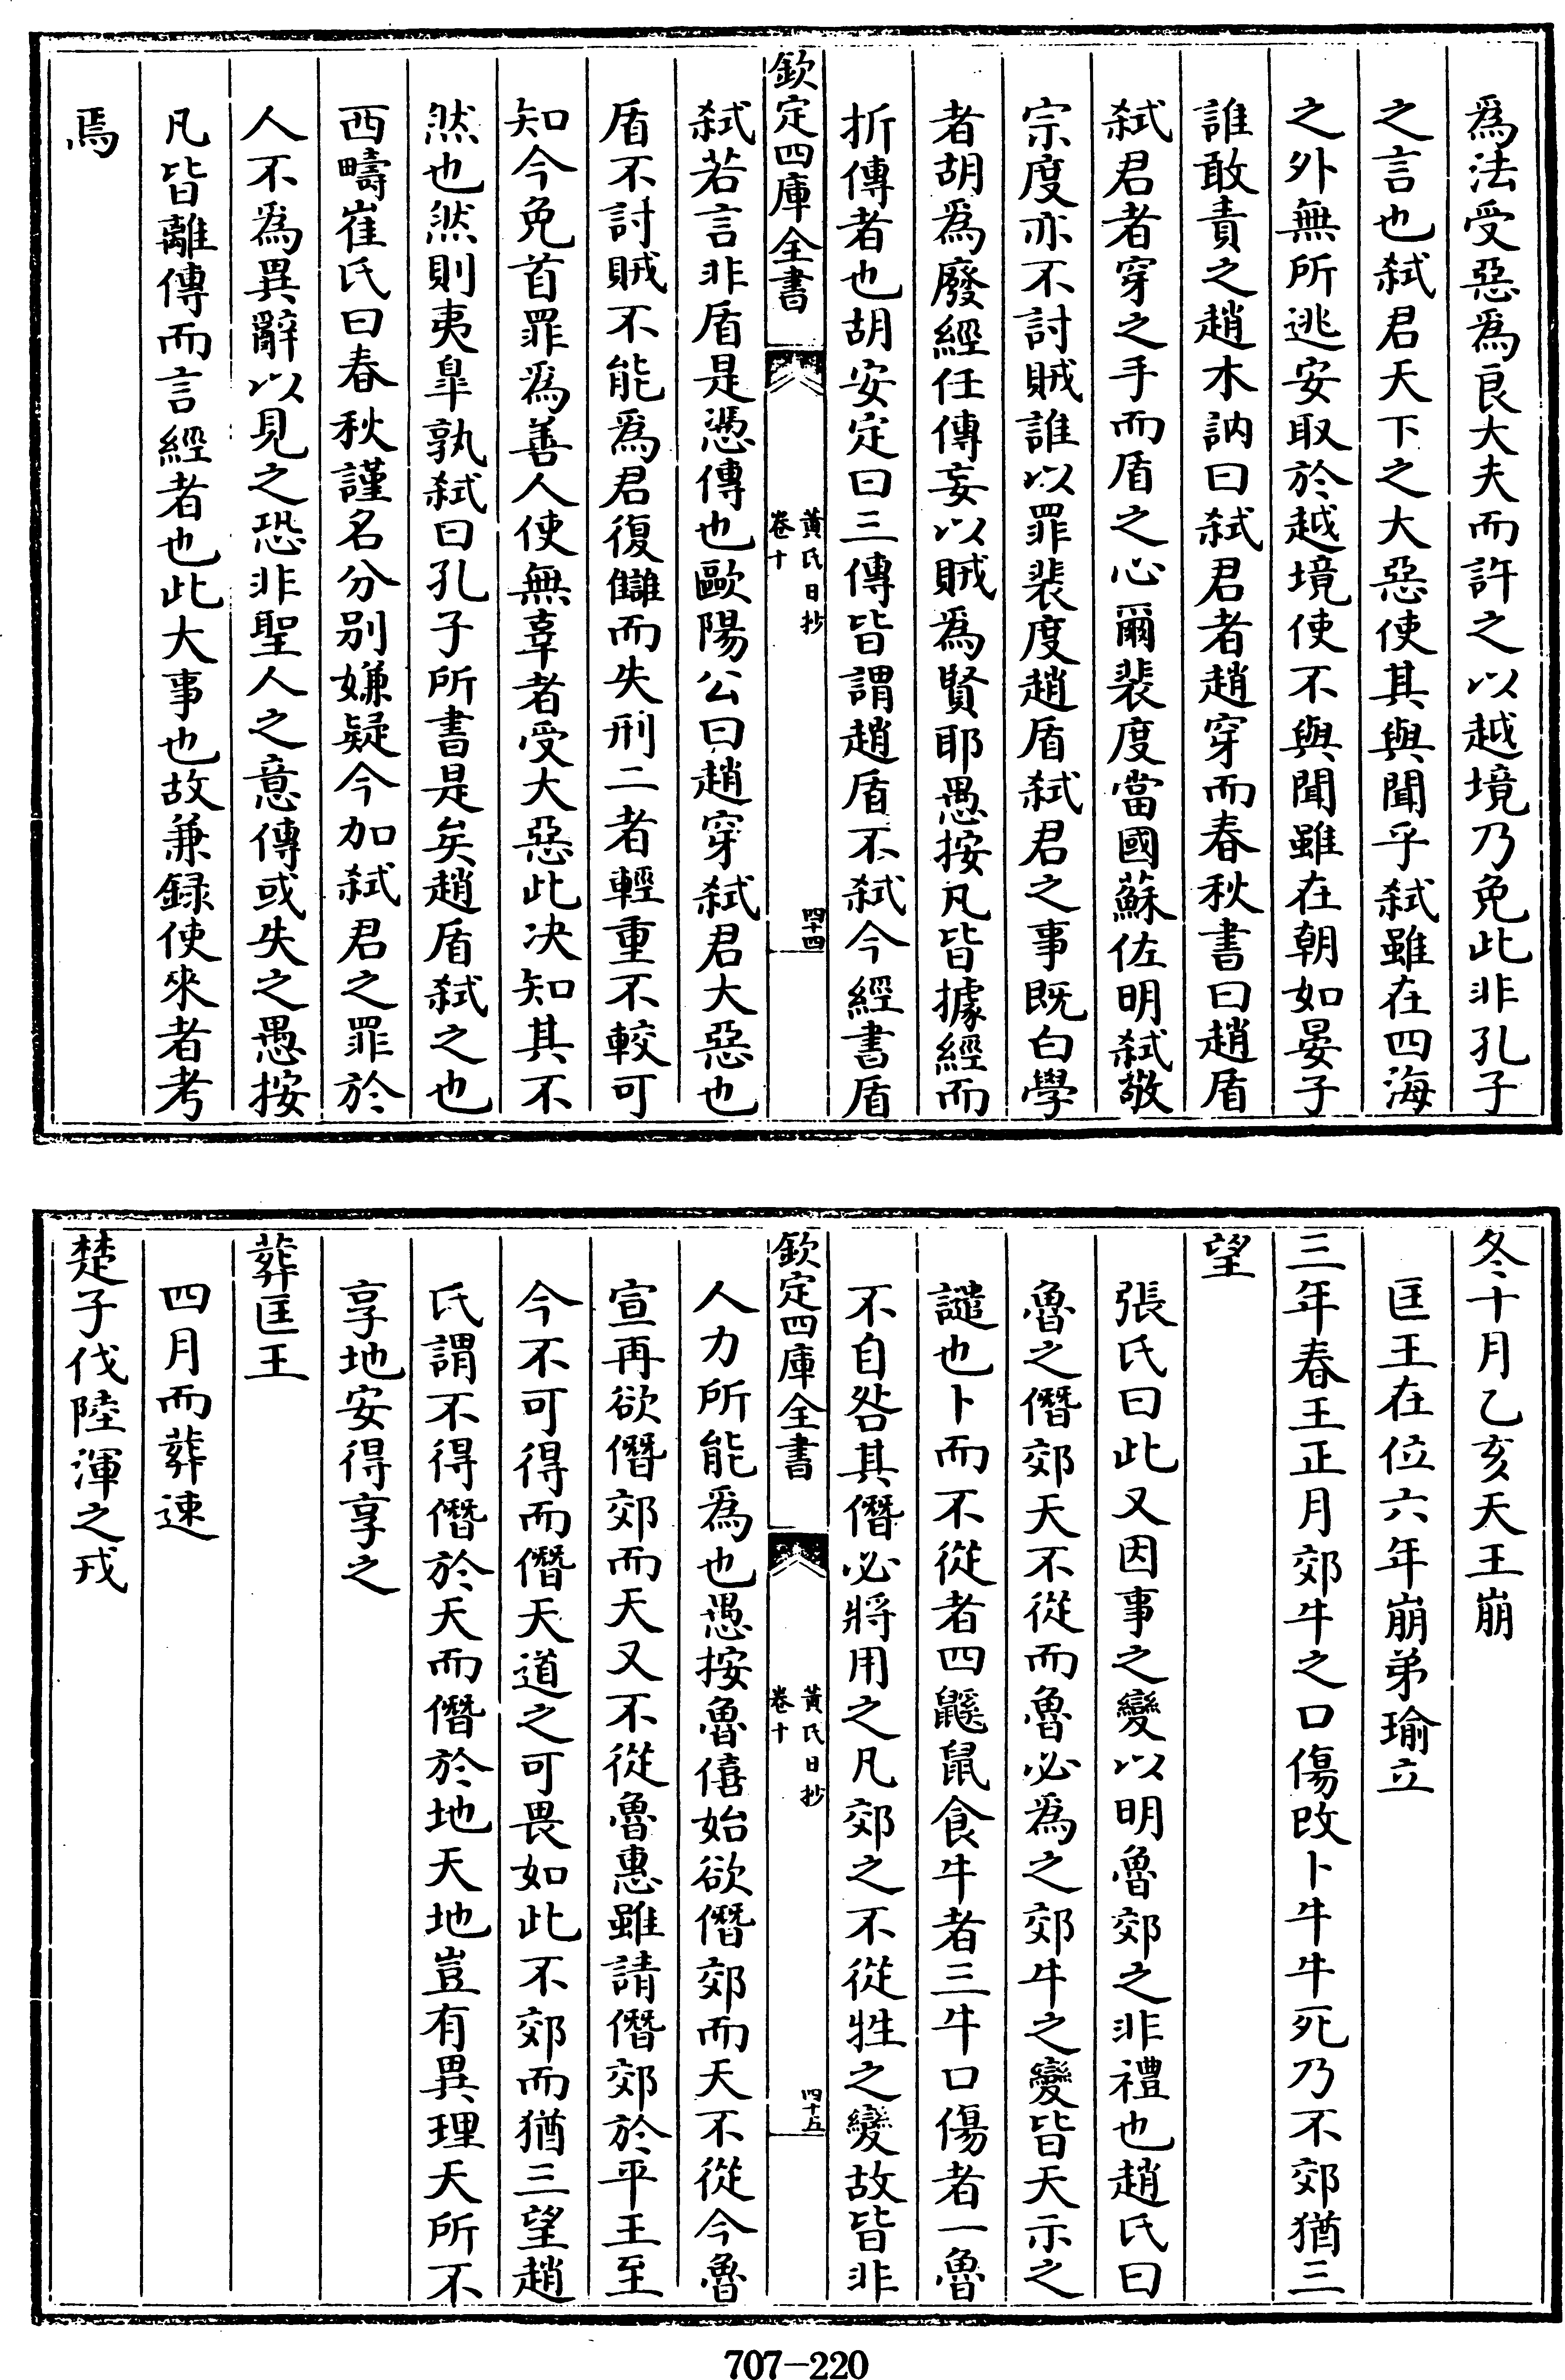 爲法受惡爲良大夫而許之以越境乃免此非孔子
之言也弑君天下之大惡使其與聞乎弑雖在四海
之外無所逃安取於越境使不與聞雖在朝如晏子
誰敢責之趙木訥曰弑君者趙穿而春秋書曰趙盾
弑君者穿之手而盾之心爾裴度當國蘇佐明弑敬
宗度亦不討賊誰以罪裴度趙盾弑君之事既白學
者胡爲廢經任傳妄以賊爲賢耶愚按凡皆據經而
折傳者也胡安定曰三傳皆謂趙盾不弑今經書盾
欽定四庫全書
黄氏日抄
卷十
四十四
弑若言非盾是憑傳也歐陽公曰趙穿弑君大惡也
盾不討賊不能爲君復讎而失刑二者輕重不較可
知今免首罪爲善人使無辜者受大惡此决知其不
然也然則夷臯孰弑曰孔子所書是矣趙盾弑之也
西疇崔氏曰春秋謹名分别嫌疑今加弑君之罪於
人不爲異辭以見之恐非聖人之意傳或失之愚按
凡皆離傳而言經者也此大事也故兼録使來者考
焉
冬十月乙亥天王崩
匡王在位六年崩弟瑜立
三年春王正月郊牛之口傷改卜牛牛死乃不郊猶三
望
張氏曰此又因事之變以明魯郊之非禮也趙氏曰
魯之僭郊天不從而魯必爲之郊牛之變皆天示之
譴也卜而不從者四鼷鼠食牛者三牛口傷者一魯
不自咎其僭必將用之凡郊之不從牲之變故皆非
欽定四庫全書
黄氏日抄
卷十
四十五
人力所能爲也愚按魯僖始欲僭郊而天不從今魯
宣再欲僭郊而天又不從魯惠雖請僭郊於平王至
今不可得而僭天道之可畏如此不郊而猶三望趙
氏謂不得僭於天而僭於地天地豈有異理天所不
享地安得享之
葬匡王
四月而葬速
楚子伐陸渾之戎
707-220